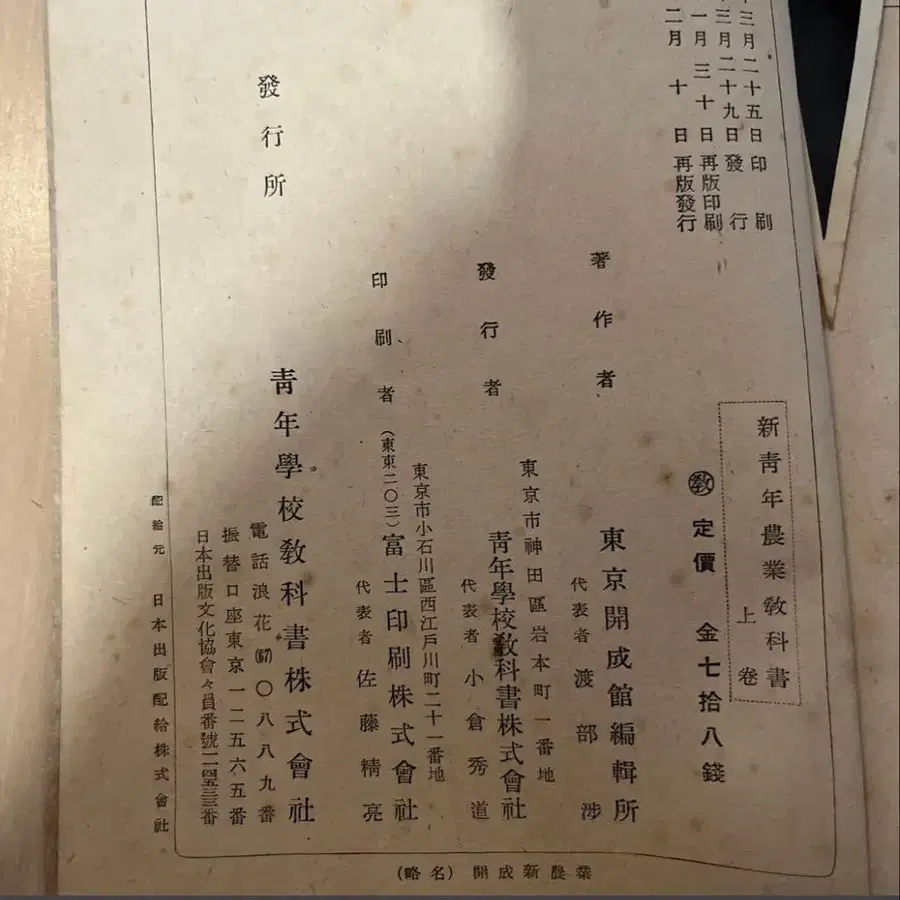 三月二十五日印刷
三月二十九日發行
一月三十日再版印刷
二月十日再版發行
新青年農業敎科書
上卷
敎 定價 金七拾八錢
著作者 東京開成館編輯所
代表者 渡部涉
東京市神田區岩本町一番地
發行者 靑年學校敎科書株式會社
代表者 小倉秀道
東京市小石川區西江戶川町二十一番地
印刷者 (東東二〇三) 富士印刷株式會社
代表者 佐藤精亮
發行所 靑年學校敎科書株式會社
電話浪花(67)〇八八九番
振替口座東京一二五六五番
日本出版文化協會々員番號
配給元 日本出版配給株式會社
(略名) 開成新農業